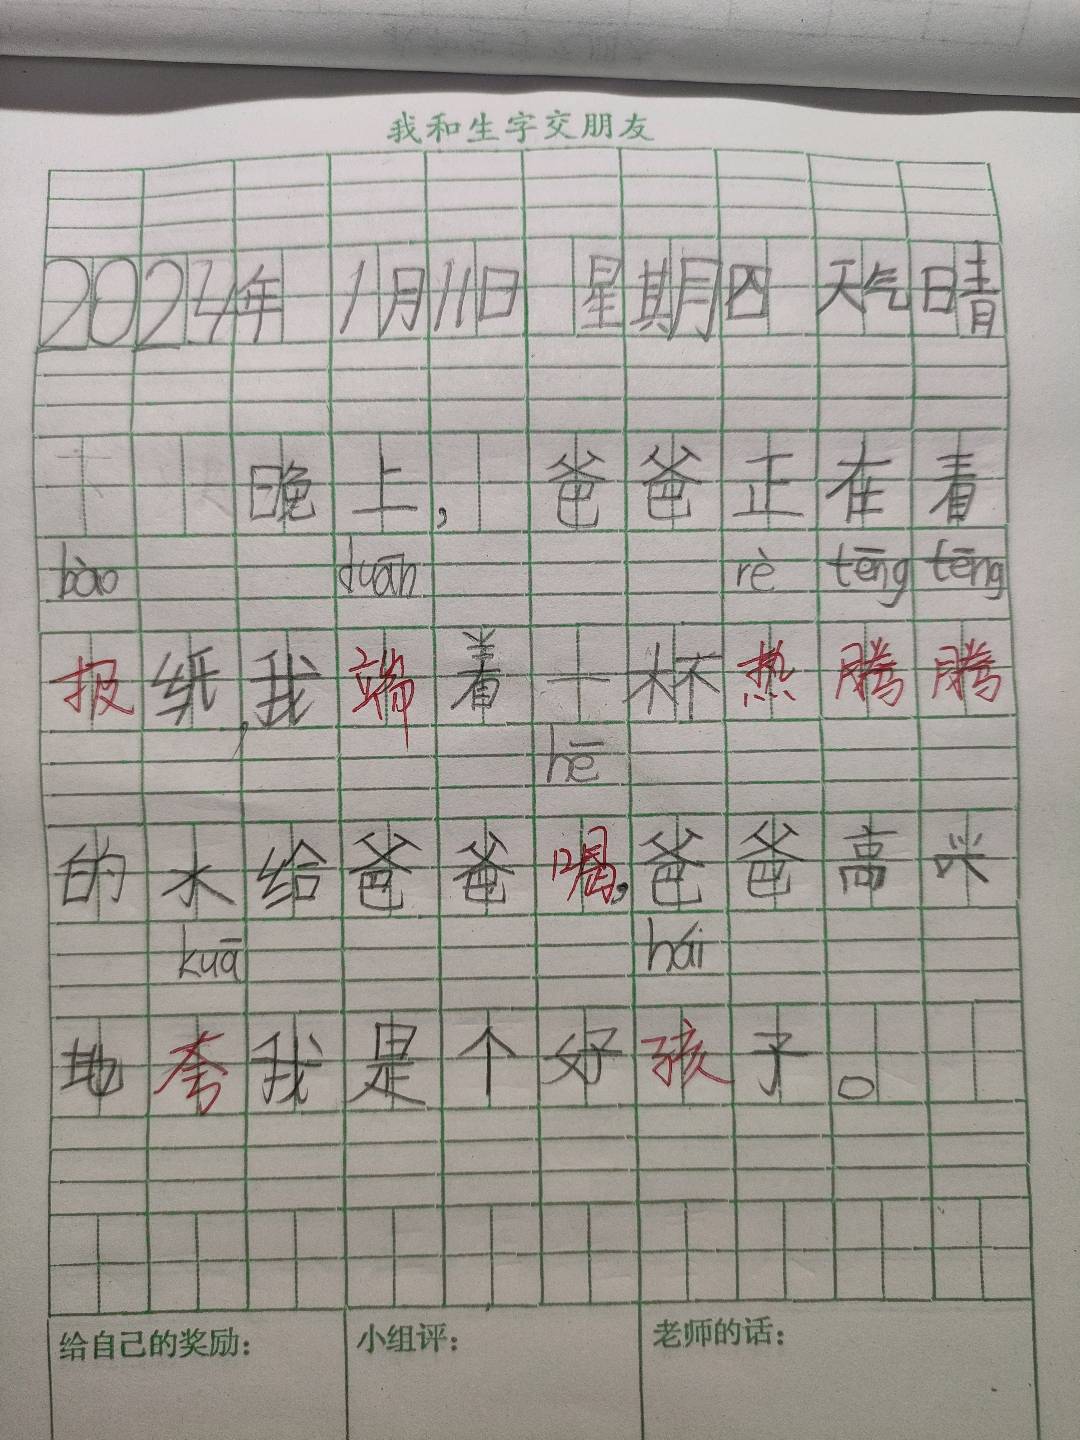 我和生字交朋友
2024年 1月11日 星期四 天气晴
晚上，爸爸正在看
bào duān rè tēng tēng
报纸，我端着一杯热腾腾
hē
的水给爸爸喝，爸爸高咪
kuā hái
地夸我是个好孩子。
给自己的奖励： 小组评： 老师的话：